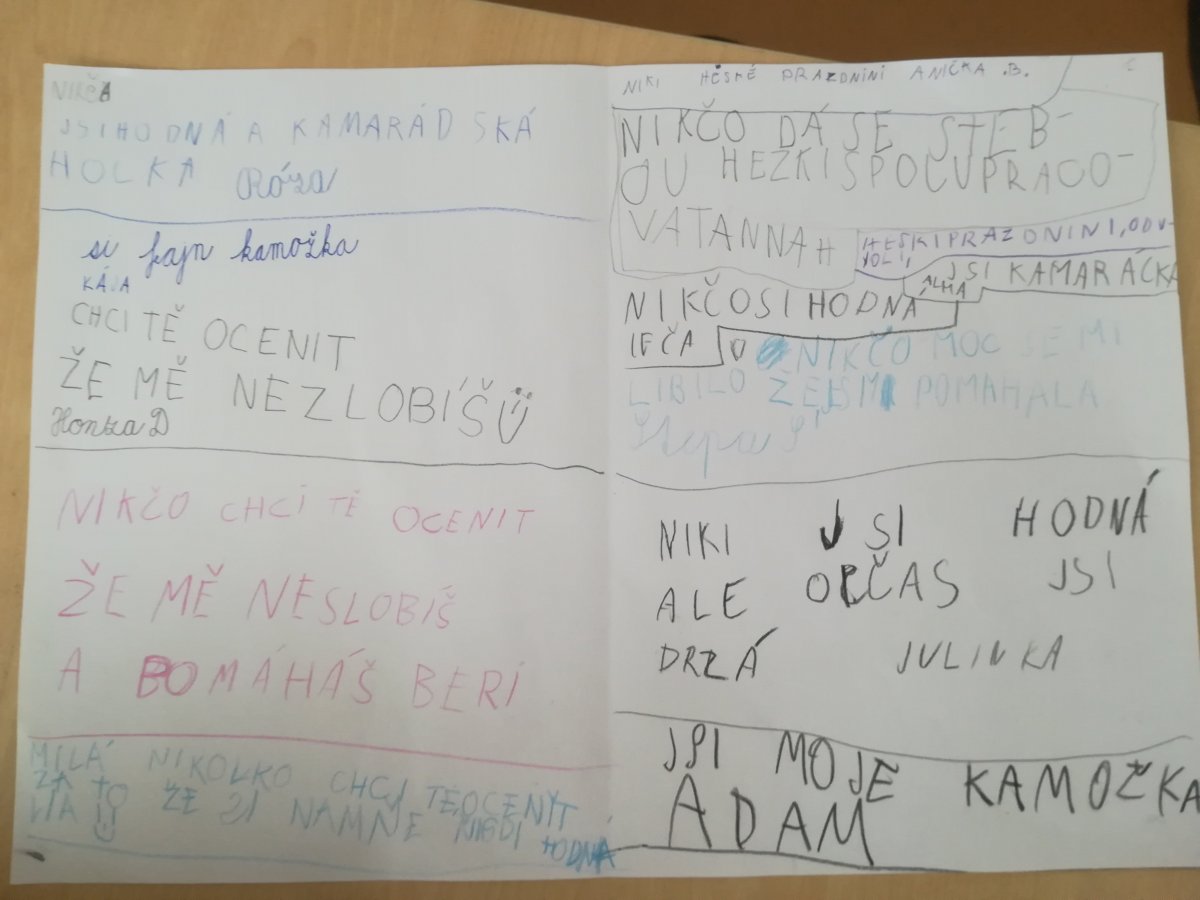 NIKČA
JSI HODNÁ A KAMARÁDSKÁ
HOLKA Róza
si fajn kamožka
KÁJA
CHCI TĚ OCENIT
ŽE MĚ NEZLOBÍŠ
Honza D
NIKČO CHCI TĚ OCENIT
ŽE MĚ NESLOBÍŠ
A POMÁHÁŠ BERI
MILÁ NIKOLKO CHCI TĚOCENYT
ZA TO ŽE SI NAMNE HODNÁ
NIKI HESKÉ PRAZDNINI ANIČKA .B.
NIKČO DÁ SE STEB-
OU HEZKI SPOLUPRACO-
VAT ANNA H
HESKI PRAZDNINI,
JSI KAMARÁČKA
ALMA
NIKČO SI HODNÁ
NIKČO MOC SE MI
LIBILO ŽE JSI MI POMAHALA
NIKI JSI HODNÁ
ALE OBČAS JSI
DRZÁ JULINKA
JSI MOJE KAMOŽKA
ADAM